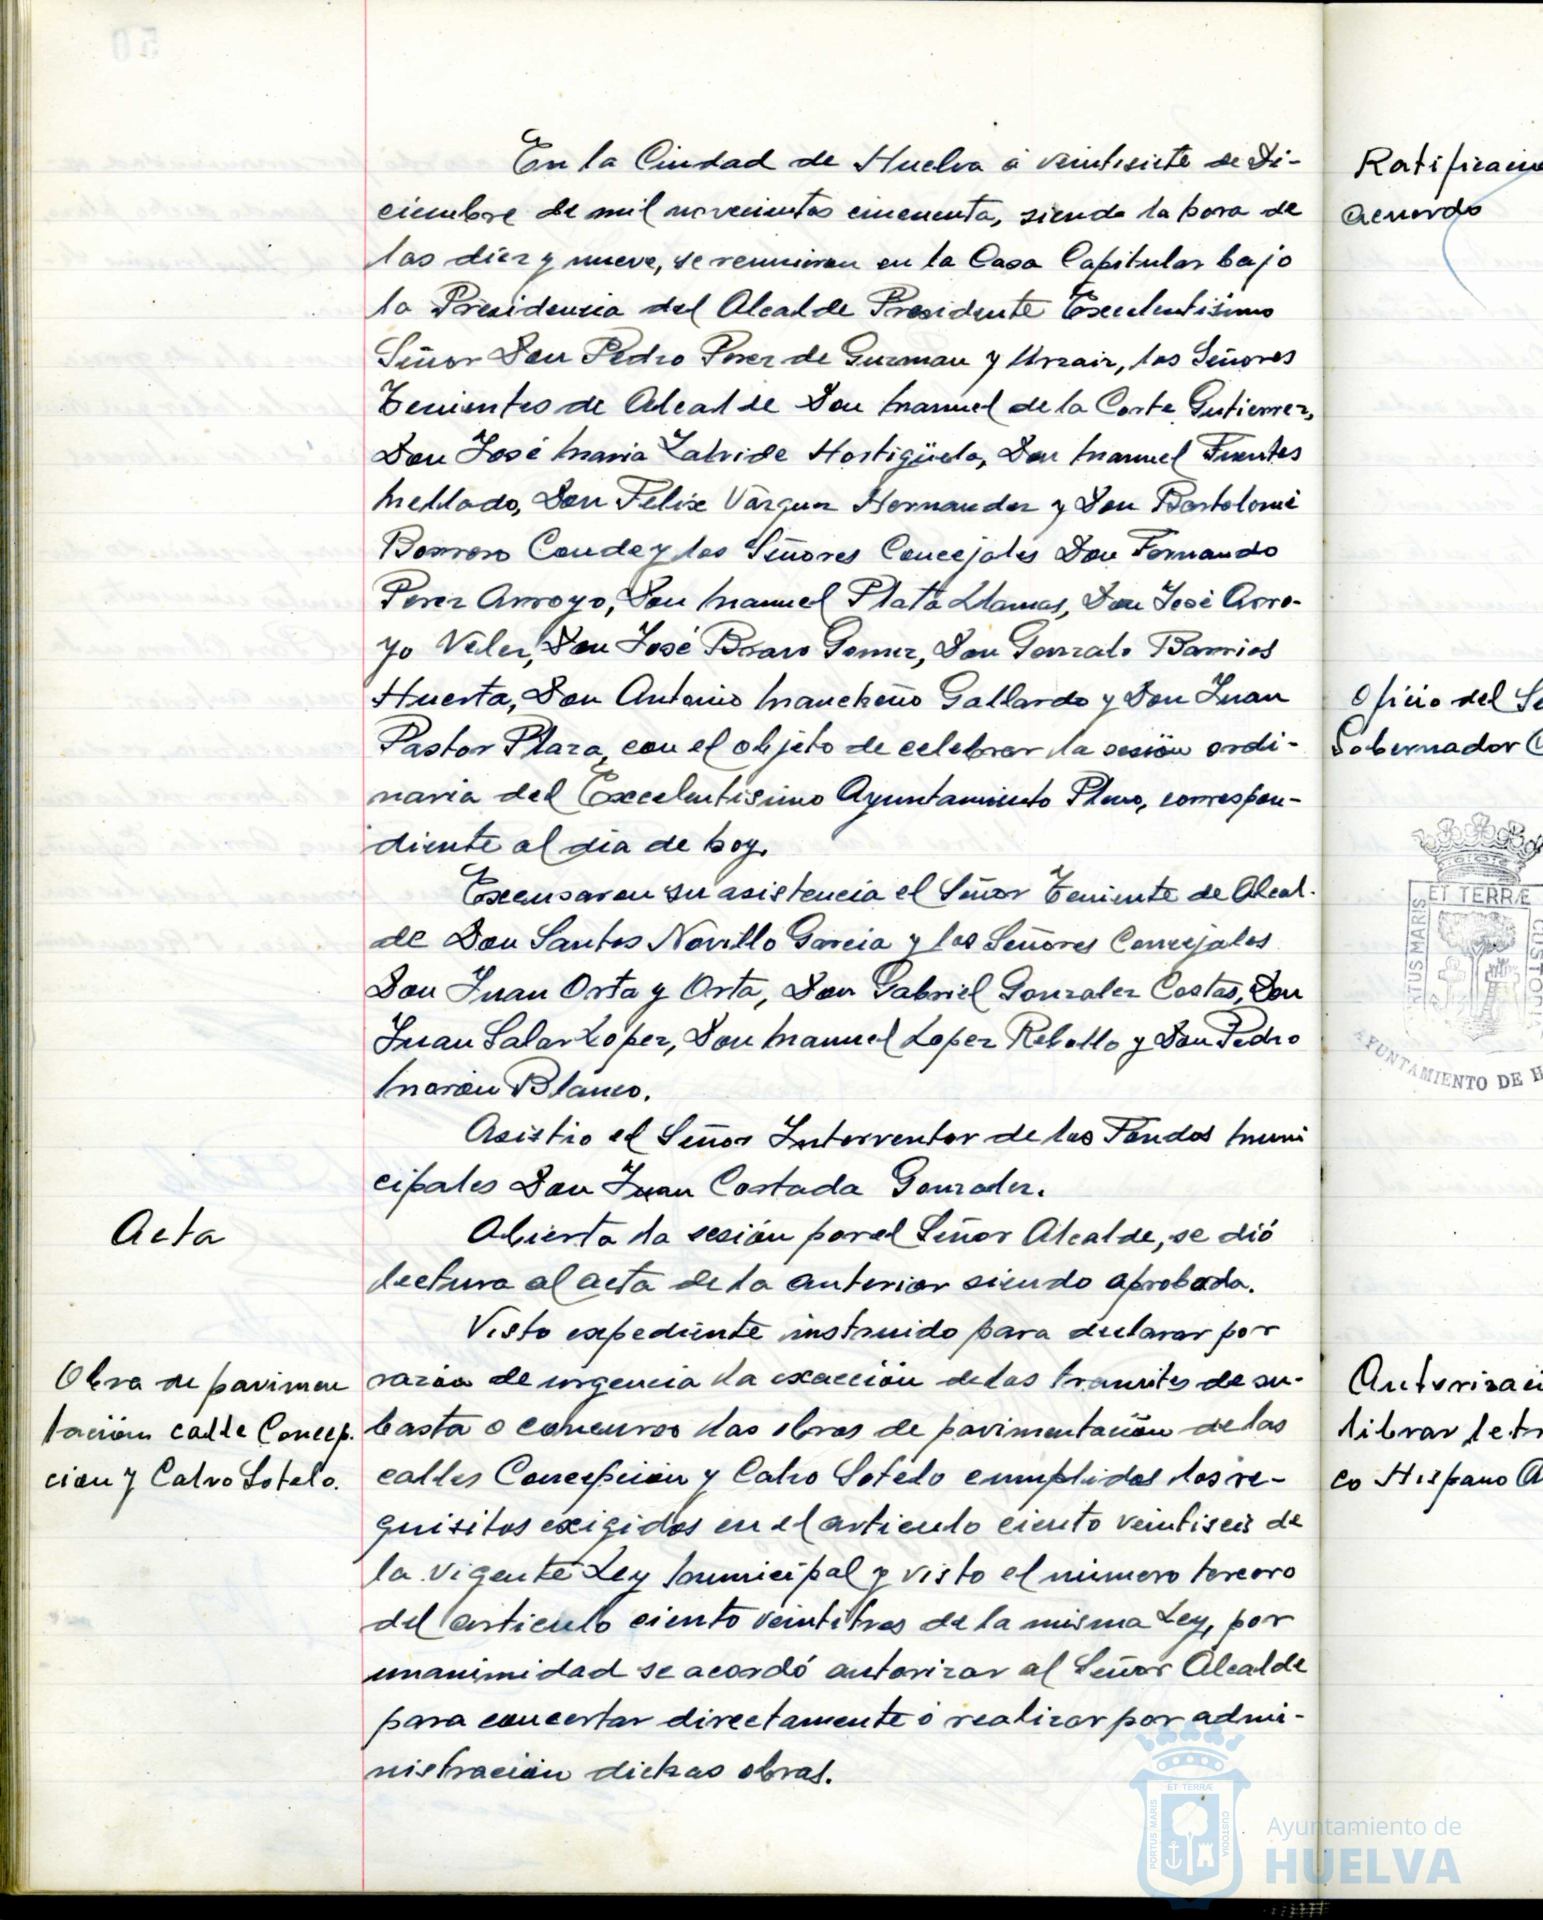 En la Ciudad de Huelva á veintisiete de Di-
ciembre de mil novecientos cincuenta, siendo la hora de
las diez y nueve, se reunieron en la Casa Capitular bajo
la Presidencia del Alcalde Presidente Excelentisimo
Señor Don Pedro Perez de Guzman y Urzaiz, los Señores
Tenientes de Alcalde Don Manuel de la Corte Gutierrez,
Don José Maria Zalvide Hortigüela, Don Manuel Fuentes
Mellado, Don Felix Vázquez Hernandez y Don Bartolomé
Borrero Conde y los Señores Concejales Don Fernando
Perez Arroyo, Don Manuel Plata Llamas, Don José Arro-
yo Velez, Don José Bravo Gomez, Don Gonzalo Barrios
Huerta, Don Antonio Mancheño Gallardo y Don Juan
Pastor Plaza, con el objeto de celebrar la sesión ordi-
naria del Excelentisimo Ayuntamiento Pleno, correspon-
diente al dia de hoy.
Excusaron su asistencia el Señor Teniente de Alcal-
de Don Santos Novillo Garcia y los Señores Concejales
Don Juan Orta y Orta, Don Gabriel Gonzalez Costas, Don
Juan Salas Lopez, Don Manuel Lopez Rebollo y Don Pedro
Morón Blanco.
Asistio el Señor Interventor de los Fondos Muni
cipales Don Juan Costada Gonzalez.
Acta
Abierta la sesión por el Señor Alcalde, se dió
lectura al acta de la anterior siendo aprobada.
Obra de pavimen
tación calle Concep.
cion y Calvo Sotelo.
Visto expediente instruido para declarar por
razón de urgencia la exacción de los tramites de su-
basta o concurso las obras de pavimentación de las
calles Concepción y Calvo Sotelo cumplidos los re-
quisitos exigidos en el articulo ciento veintiseis de
la vigente Ley Municipal y visto el número tercero
del articulo ciento veintitres de la misma Ley, por
unanimidad se acordó autorizar al Señor Alcalde
para concertar directamente ó realizar por admi-
nistración dichas obras.
Ratificación
acuerdo
Oficio del Se
Gobernador C
ET TERRÆ
PORTUS MARIS
CUSTODIA
AYUNTAMIENTO DE H
Autorizaci
librar letr
co Hispano A
ET TERRÆ
PORTUS MARIS
CUSTODIA
Ayuntamiento de
HUELVA